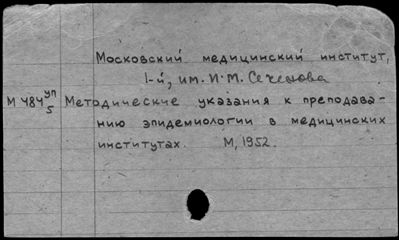 Московский медицинский институт,
1-й, им. И. М. Сеченова
М 484 уп 5 Методические указания к преподава-
нию эпидемиологии в медицинских
институтах. М, 1952.